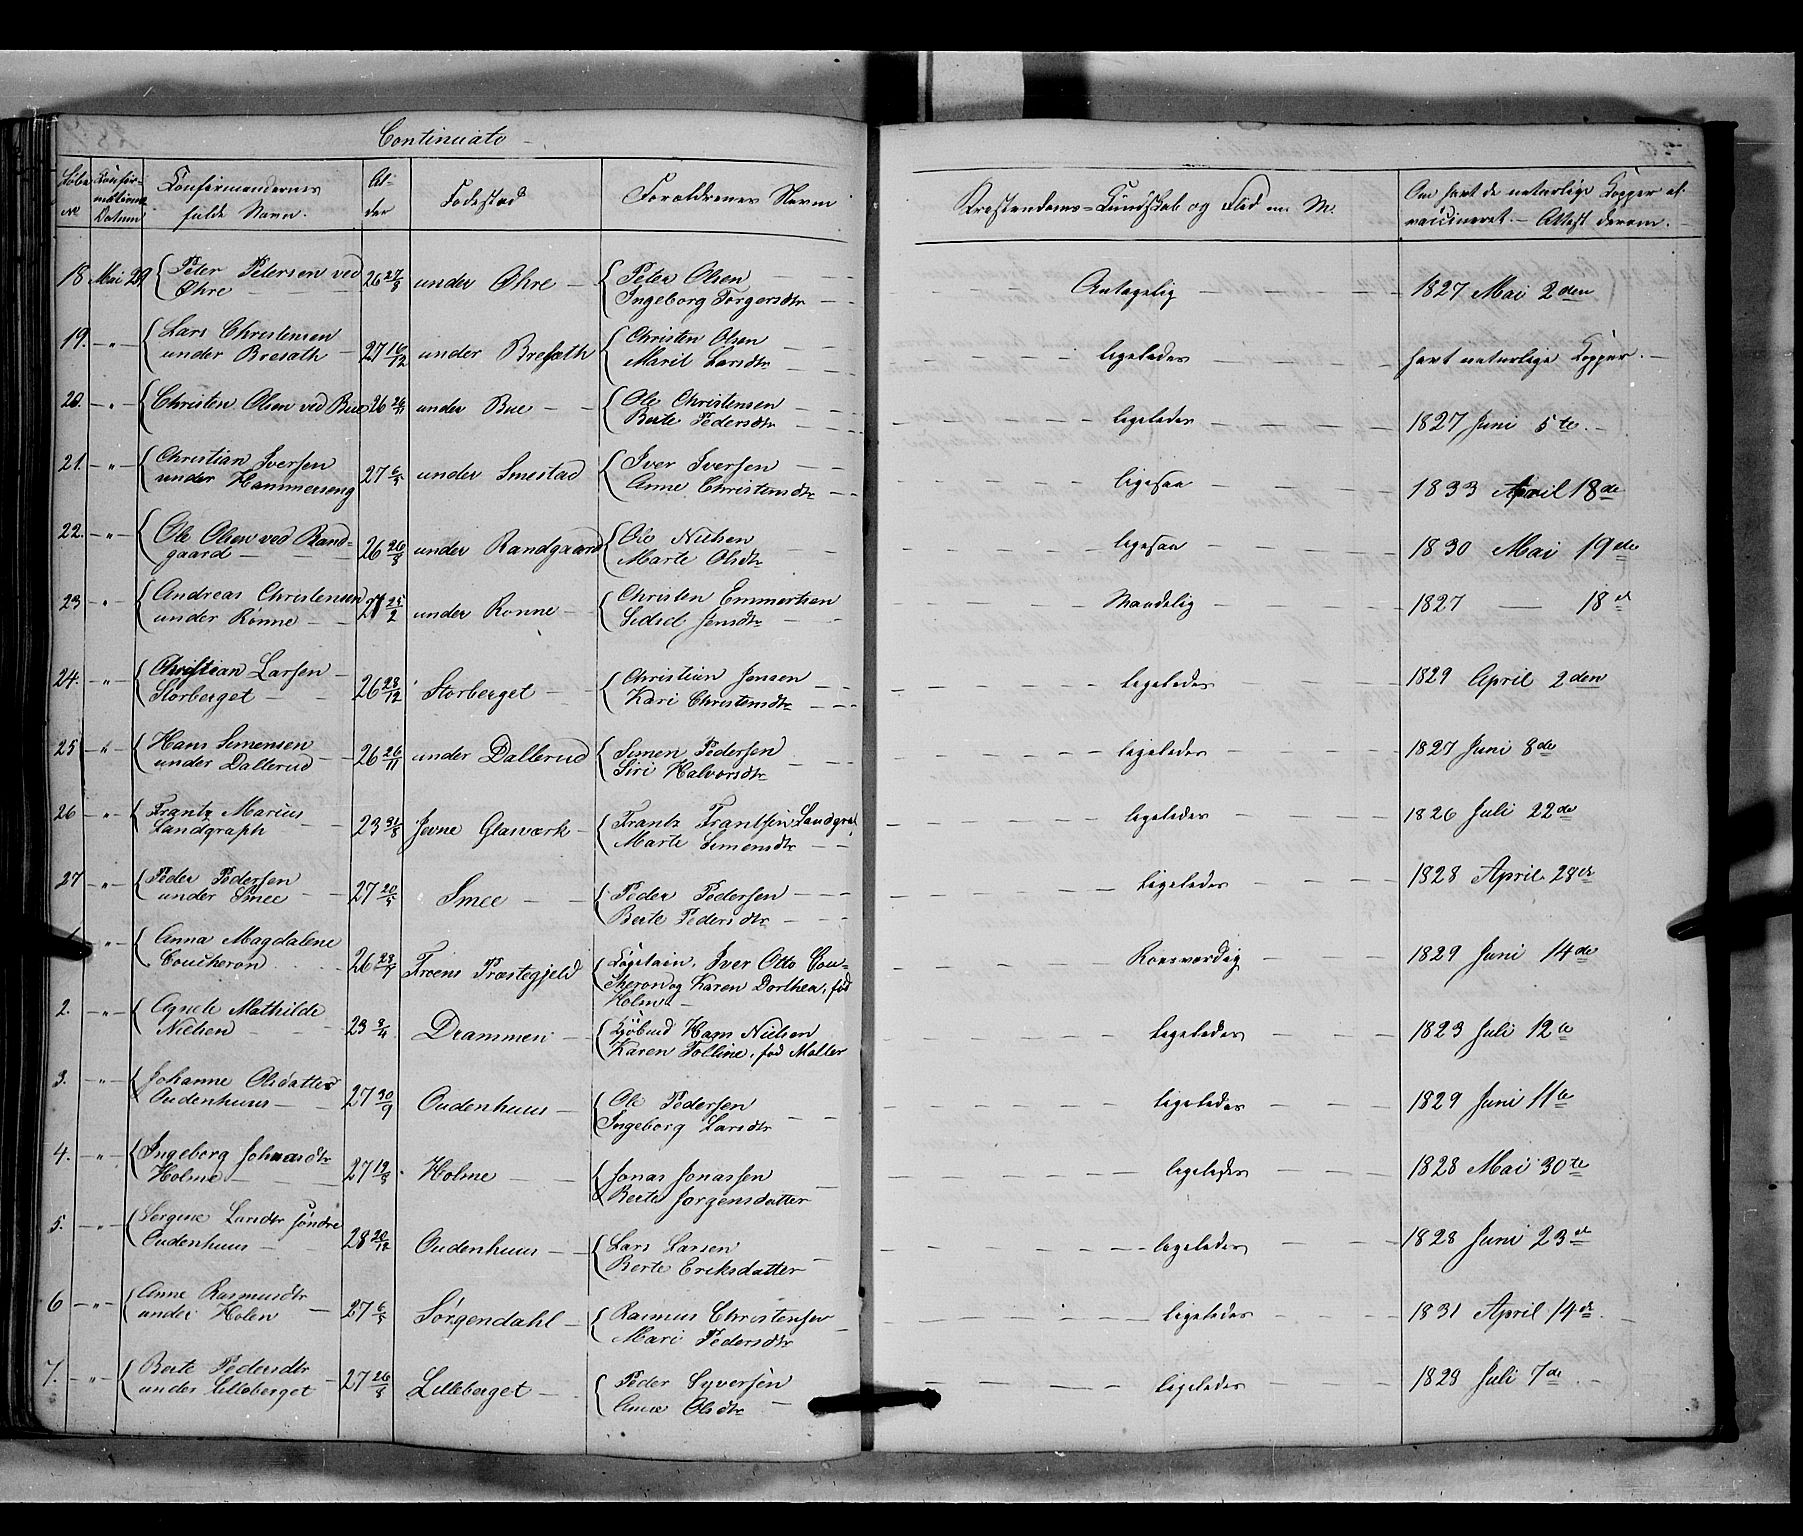 Continuato
Løbe No
Konfirmations Datum
Konfirmandernes fulde Navn.
Alder
Fødested
Forældrenes Navn
Christendoms-Kundskab og Flid m. M.
Om havt de naturlige Kopper el. vaccineret. — Attest derom.
18 Mai 29 Peter Petersen ved Øhre 26 27/5 under Øhre Peter Olsen Ingeborg Torgersdtr Antagelig 1827 Mai 2den
19. " Lars Christensen under Bresath 27 16/12 under Bresæth Christen Olsen Marit Larsdtr ligeledes havt naturlige Kopper.
20. " Christen Olsen ved Bue 26 26/11 under Bue Ole Christensen Berte Pedersdtr ligeledes 1827 Juni 5te.
21. " Christian Iversen under Hammerseng 27 6/5 under Smestad Iver Iversen Anne Christensdtr ligesaa 1833 April 18de
22. " Ole Olsen ved Randgaard 26 26/8 under Randgaard Ole Nielsen Marte Olsdtr ligesaa 1830 Mai 19de
23 " Andreas Christensen under Rønne 27 25/2 under Rønne Christen Emmertsen Sidsel Jensdtr Maadelig 1827 — 18de
24. " Christian Larsen Storberget 26 28/12 Storberget Christian Jensen Kari Christensdtr ligeledes 1829 April 2den
25 " Hans Simensen under Dallerud 26 26/11 under Dallerud Simen Pedersen Siri Halvorsdtr ligeledes 1827 Juni 8de
26 " Frantz Marius Landgraph 23 31/8 Jevne Glasværk Frantz Frantsen Landgra Marte Simensdtr ligeledes 1826 Juli 22de
27 " Peder Pedersen under Smee 27 20/5 Smee Peder Pedersen Berte Pedersdtr ligeledes 1828 April 28de
" Anna Magdalene Coucheron 26 23/9 Froens Præstegjeld Kapitain, Iver Otto Coucheron og Karen Dorthea, fød Holm Roesværdig 1829 Juni 14de
2. " Agnete Mathilde Nielsen 23 3/4 Drammen Kjøbmd Hans Nielsen Karen Tolline, fød Møller ligeledes 1823 Juli 12te
3. " Johanne Olsdatter Oudenhuus 27 30/9 Oudenhuus Ole Pedersen Ingeborg Larsdtr ligeledes 1829 Juni 11te
4. " Ingeborg Johnasdtr Holme 27 19/8 Holme Jonas Jonassen Berte Jørgensdatter ligeledes 1828 Mai 30te
5. " Sergine Larsdtr søndre Oudenhuus 28 20/12 Oudenhuus Lars Larsen Berte Eriksdatter ligeledes 1828 Juni 23de
6 " Anne Rasmusdtr under Holen 27 6/5 Sørgendahl Rasmus Christensen Mari Pedersdtr ligeledes 1831 April 14de
7. " Berte Pedersdtr under Lilleberget 27 26/8 Lilleberget Peder Syversen Anne Olsdtr ligeledes 1829 Juli 7de